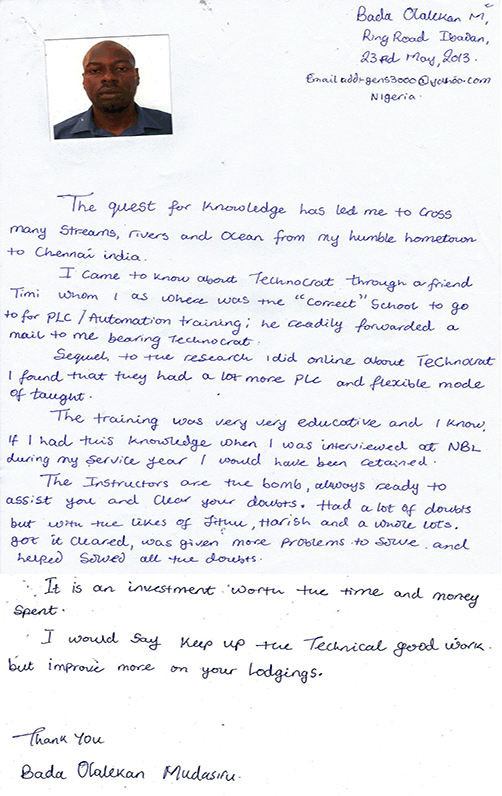 Bada Olalekan M,
Ring Road Ibadan,
23rd May, 2013.
Email addr-gens3000@yahoo.com
Nigeria.
The quest for knowledge has led me to cross
many streams, rivers and Ocean from my humble hometown
to Chennai india.
I came to know about Technocrat through a friend
Timi whom I as where was the "correct" School to go
to for PLC/Automation training; he readily forwarded a
mail to me bearing Technocrat.
Sequel to the research I did online about Technocrat
I found that they had a lot more PLC and flexible mode
of taught.
The training was very very educative and I know,
If I had this knowledge when I was interviewed at NBL
during my service year I would have been retained.
The Instructors are the bomb, always ready to
assist you and clear your doubts. Had a lot of doubts
but with the likes of Jithu, Harish and a whole lots.
got it cleared, was given more problems to solve and
helped solved all the doubts.
It is an investment worth the time and money
spent.
I would say keep up the Technical good work.
but improve more on your lodgings.
Thank You
Bada Olalekan Mudasiru.